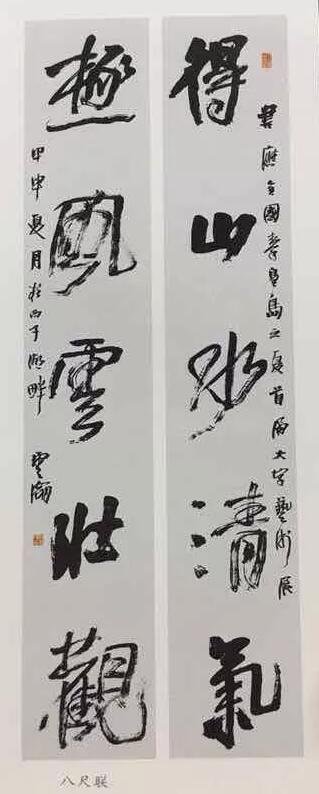 得山水清氣
書應全國秦皇島之夏首屆大字藝術展
極風雲壯觀
甲申夏月於西子湖畔
八尺联